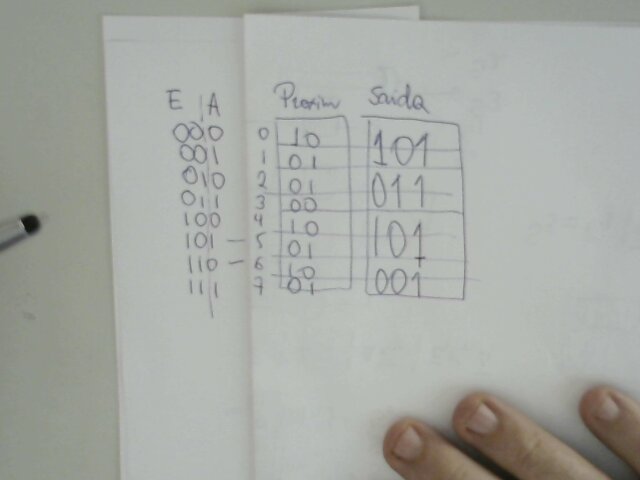 E A Proxim Saida
000 0 10 101
001 1 01
010 2 01 011
011 3 00
100 4 10 101
101 - 5 01
110 - 6 10 001
111 7 01